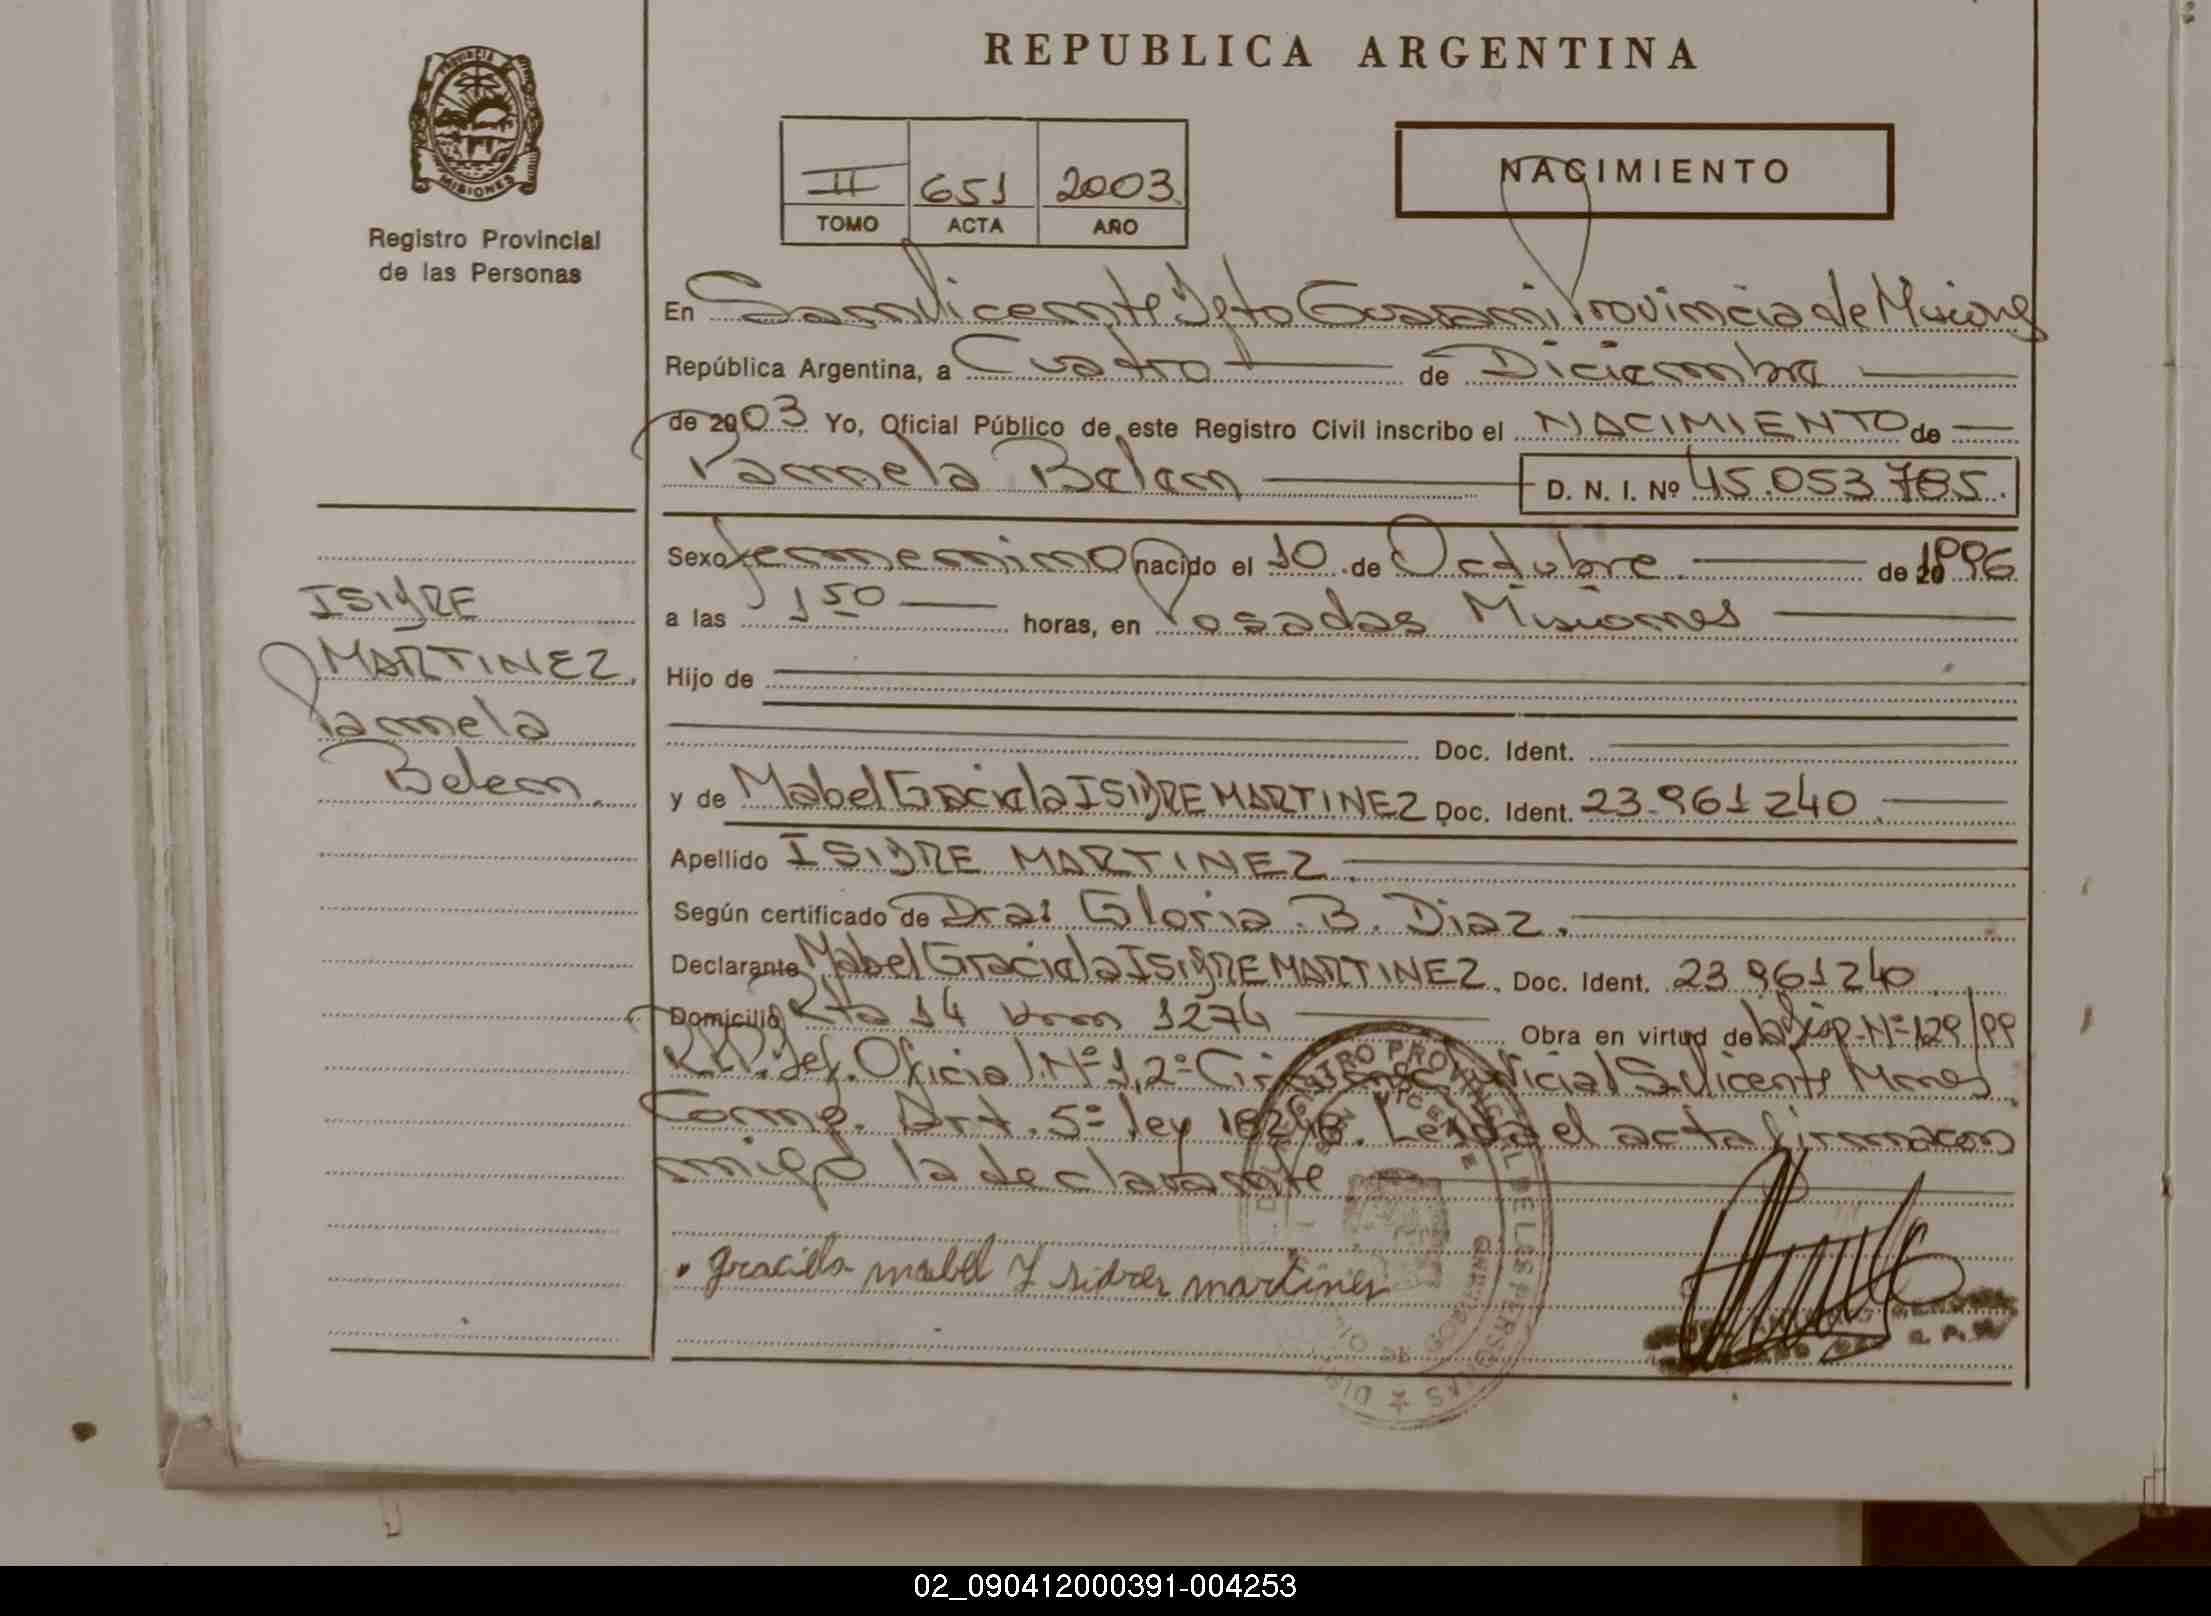 REPUBLICA ARGENTINA
PROVINCIA
MISIONES
Registro Provincial
de las Personas
II 651 2003
TOMO ACTA AÑO
NACIMIENTO
En San Vicente Dpto Guarani Provincia de Misiones
República Argentina, a Cuatro de Diciembre
de 2003 Yo, Oficial Público de este Registro Civil inscribo el NACIMIENTO de
Pamela Belem D. N. I. Nº 45.053.785.
Sexo femenino nacido el 10 de Octubre de 1996
a las 1 50 horas, en Posadas Misiones
Hijo de
Doc. Ident.
y de Mabel Graciela ISIDRE MARTINEZ Doc. Ident. 23.961240
Apellido ISIDRE MARTINEZ
Según certificado de Dra: Gloria B. Diaz.
Declarante Mabel Graciela ISIDRE MARTINEZ. Doc. Ident. 23 961240
Domicilio Rta 14 km 1274 Obra en virtud de la Disp. Nº 129/99
Def. Oficial Nº 1, 2º Judicial S. Vicente Mnes
Art. 5º ley 18248. Leida el acta firma con
migo la declarante
ISIDRE
MARTINEZ
Pamela
Belem.
graciela mabel Y sidres martines
02_090412000391-004253